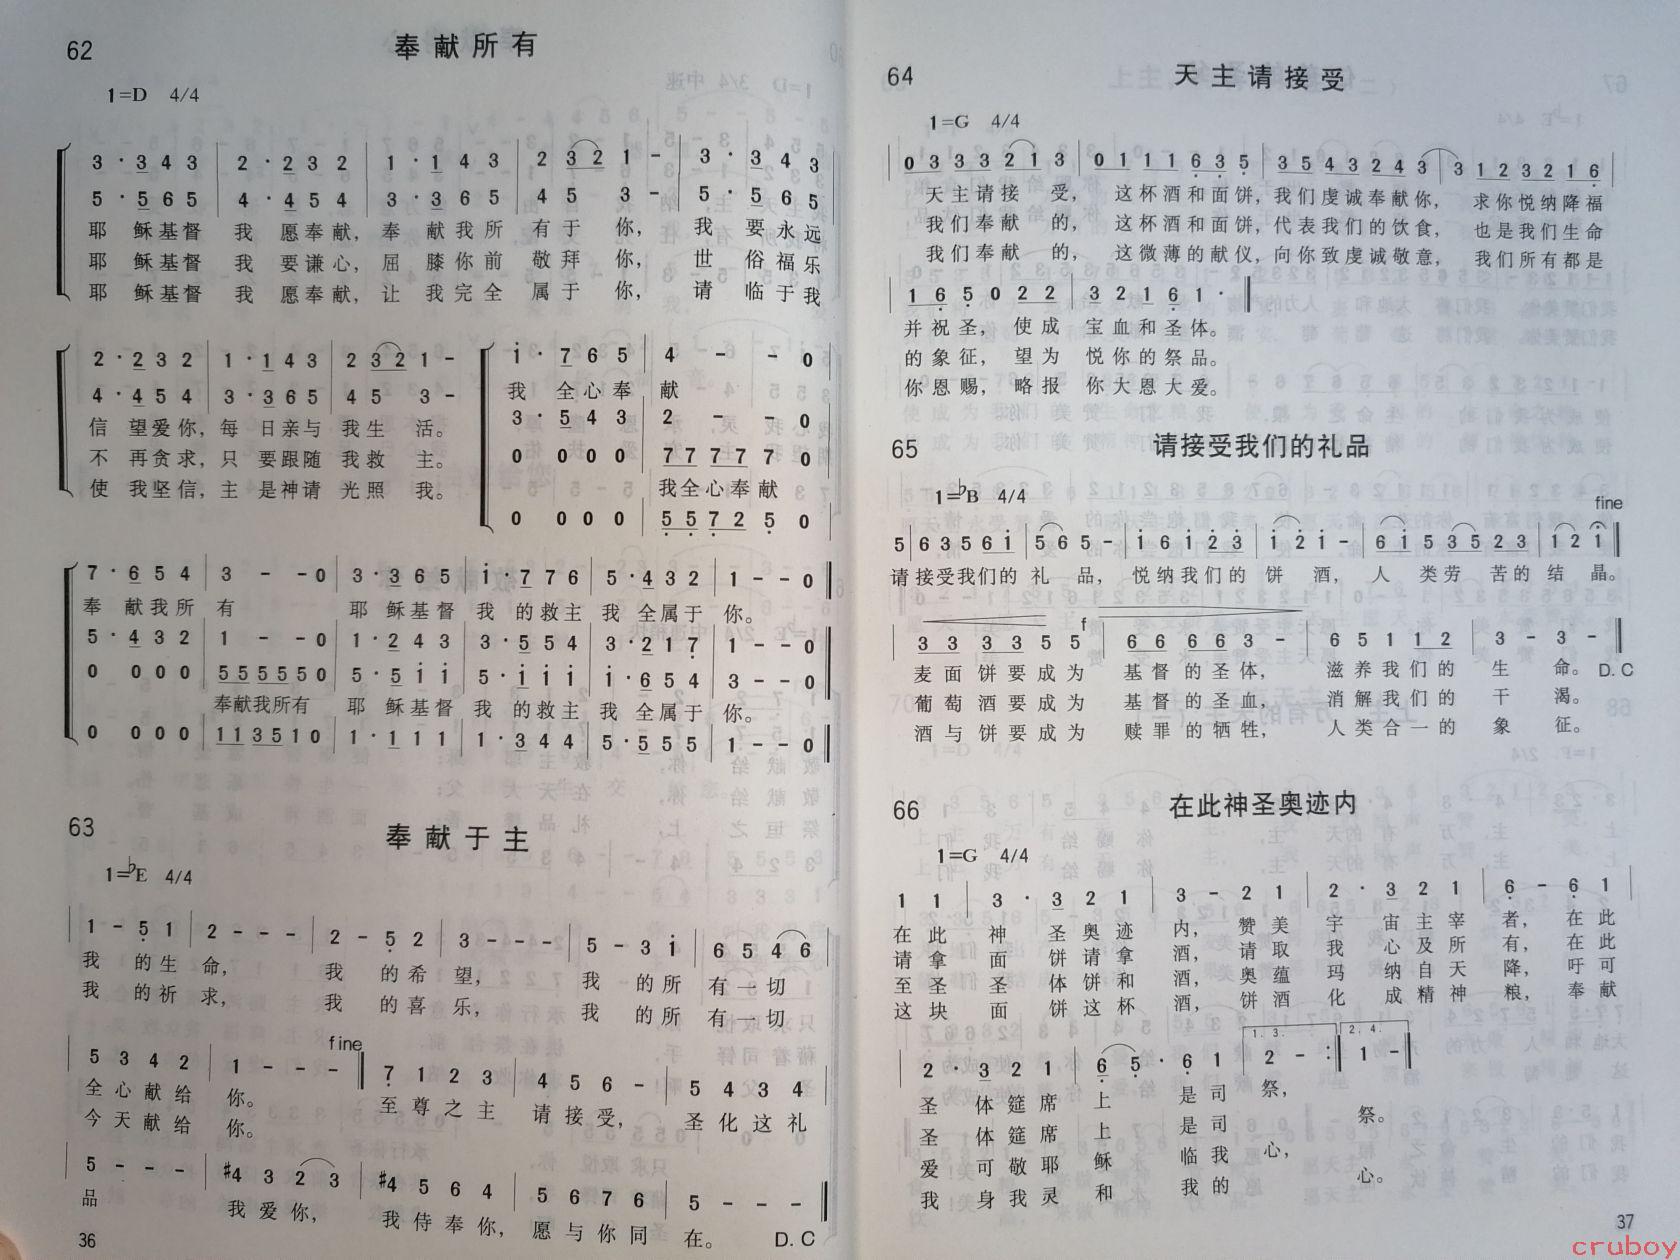 62
奉献所有
1=D 4/4
3·3 4 3 | 2·2 3 2 | 1·1 4 3 | 2 3 2 1 - | 3·3 4 3
5·5 6 5 | 4·4 5 4 | 3·3 6 5 | 4 5 3 - | 5·5 6 5
耶 稣基督 我 愿奉献，奉 献我所 有于 你， 我 要永远
耶 稣基督 我 要谦心，屈 膝你前 敬拜 你， 世 俗福乐
耶 稣基督 我 愿奉献，让 我完全 属于 你， 请 临于我
2·2 3 2 | 1·1 4 3 | 2 3 2 1 - | i·7 6 5 | 4 - - 0
我 全心奉 献
4·4 5 4 | 3·3 6 5 | 4 5 3 - | 3·5 4 3 | 2 - - 0
信 望爱你，每 日亲与 我生 活。
不 再贪求，只 要跟随 我救 主。
0 0 0 0 | 7 7 7 7 7 0
使 我坚信，主 是神请 光照 我。
我全心奉献
0 0 0 0 | 5 5 7 2 5 0
7·6 5 4 | 3 - - 0 | 3·3 6 5 | i·7 7 6 | 5·4 3 2 | 1 - - 0
奉 献我所 有 耶 稣基督 我 的救主 我 全属于 你。
5·4 3 2 | 1 - - 0 | 1·2 4 3 | 3·5 5 4 | 3·2 1 7 | 1 - - 0
0 0 0 0 | 5 5 5 5 5 0 | 5·5 i i | 5·i i i | i·6 5 4 | 3 - - 0
奉献我所有 耶 稣基督 我 的救主 我 全属于 你。
0 0 0 0 | 1 1 3 5 1 0 | 1·1 1 1 | 1·3 4 4 | 5·5 5 5 | 1 - - 0
63
奉献于主
1=♭E 4/4
1 - 5 1 | 2 - - - | 2 - 5 2 | 3 - - - | 5 - 3 i | 6 5 4 6
我 的生命， 我 的希望， 我 的所 有一切
我 的祈求， 我 的喜乐， 我 的所 有一切
fine
5 3 4 2 | 1 - - - | 7 1 2 3 | 4 5 6 - | 5 4 3 4
全心献给 你。 至尊之主 请接受， 圣化这礼
今天献给 你。
5 - - - | #4 3 2 3 | #4 5 6 4 | 5 6 7 6 | 5 - - -
品 我爱你， 我侍奉你，愿与你同 在。 D.C
36
64
天主请接受
1=G 4/4
0 3 3 3 2 1 3 | 0 1 1 1 6 3 5 | 3 5 4 3 2 4 3 | 3 1 2 3 2 1 6
天主请接 受， 这杯酒和面饼，我们虔诚奉献你， 求你悦纳降福
我们奉献 的， 这杯酒和面饼，代表我们的饮食， 也是我们生命
我们奉献 的， 这微薄的献仪，向你致虔诚敬意， 我们所有都是
1 6 5 0 2 2 | 3 2 1 6 1·
并祝圣， 使成 宝血和圣体。
的象征， 望为 悦你的祭品。
你恩赐， 略报 你大恩大爱。
65
请接受我们的礼品
1=♭B 4/4
fine
5 | 6 3 5 6 i | 5 6 5 - | i 6 i 2 3 | i 2 i - | 6 i 5 3 5 2 3 | 1 2 1
请接受我们的 礼 品， 悦纳我们的 饼 酒， 人 类劳 苦的 结 晶。
f
3 3 3 3 5 5 | 6 6 6 6 3 - | 6 5 1 1 1 2 | 3 - 3 -
麦面饼要成为 基督的圣体， 滋养我们的 生 命。 D.C
葡萄酒要成为 基督的圣血， 消解我们的 干 渴。
酒与饼要成为 赎罪的牺牲， 人类合一的 象 征。
66
在此神圣奥迹内
1=G 4/4
1 1 | 3·3 2 1 | 3 - 2 1 | 2·3 2 1 | 6 - 6 1
在此 神 圣奥迹 内， 赞美 宇 宙主宰 者， 在此
请拿 面 饼请拿 酒， 请取 我 心及所 有， 在此
至圣 圣 体饼和 酒， 奥蕴 玛 纳自天 降， 吁可
这块 面 饼这杯 酒， 饼酒 化 成精神 粮， 奉献
1. 3. 2. 4.
2·3 2 1 | 6 5·6 1 | 2 - :| 1 -
圣 体筵席 上 是司 祭，
圣 体筵席 上 是司 祭。
爱 可敬耶 稣 临我 心，
我 身我灵 和 我的 心。
37
cruboy